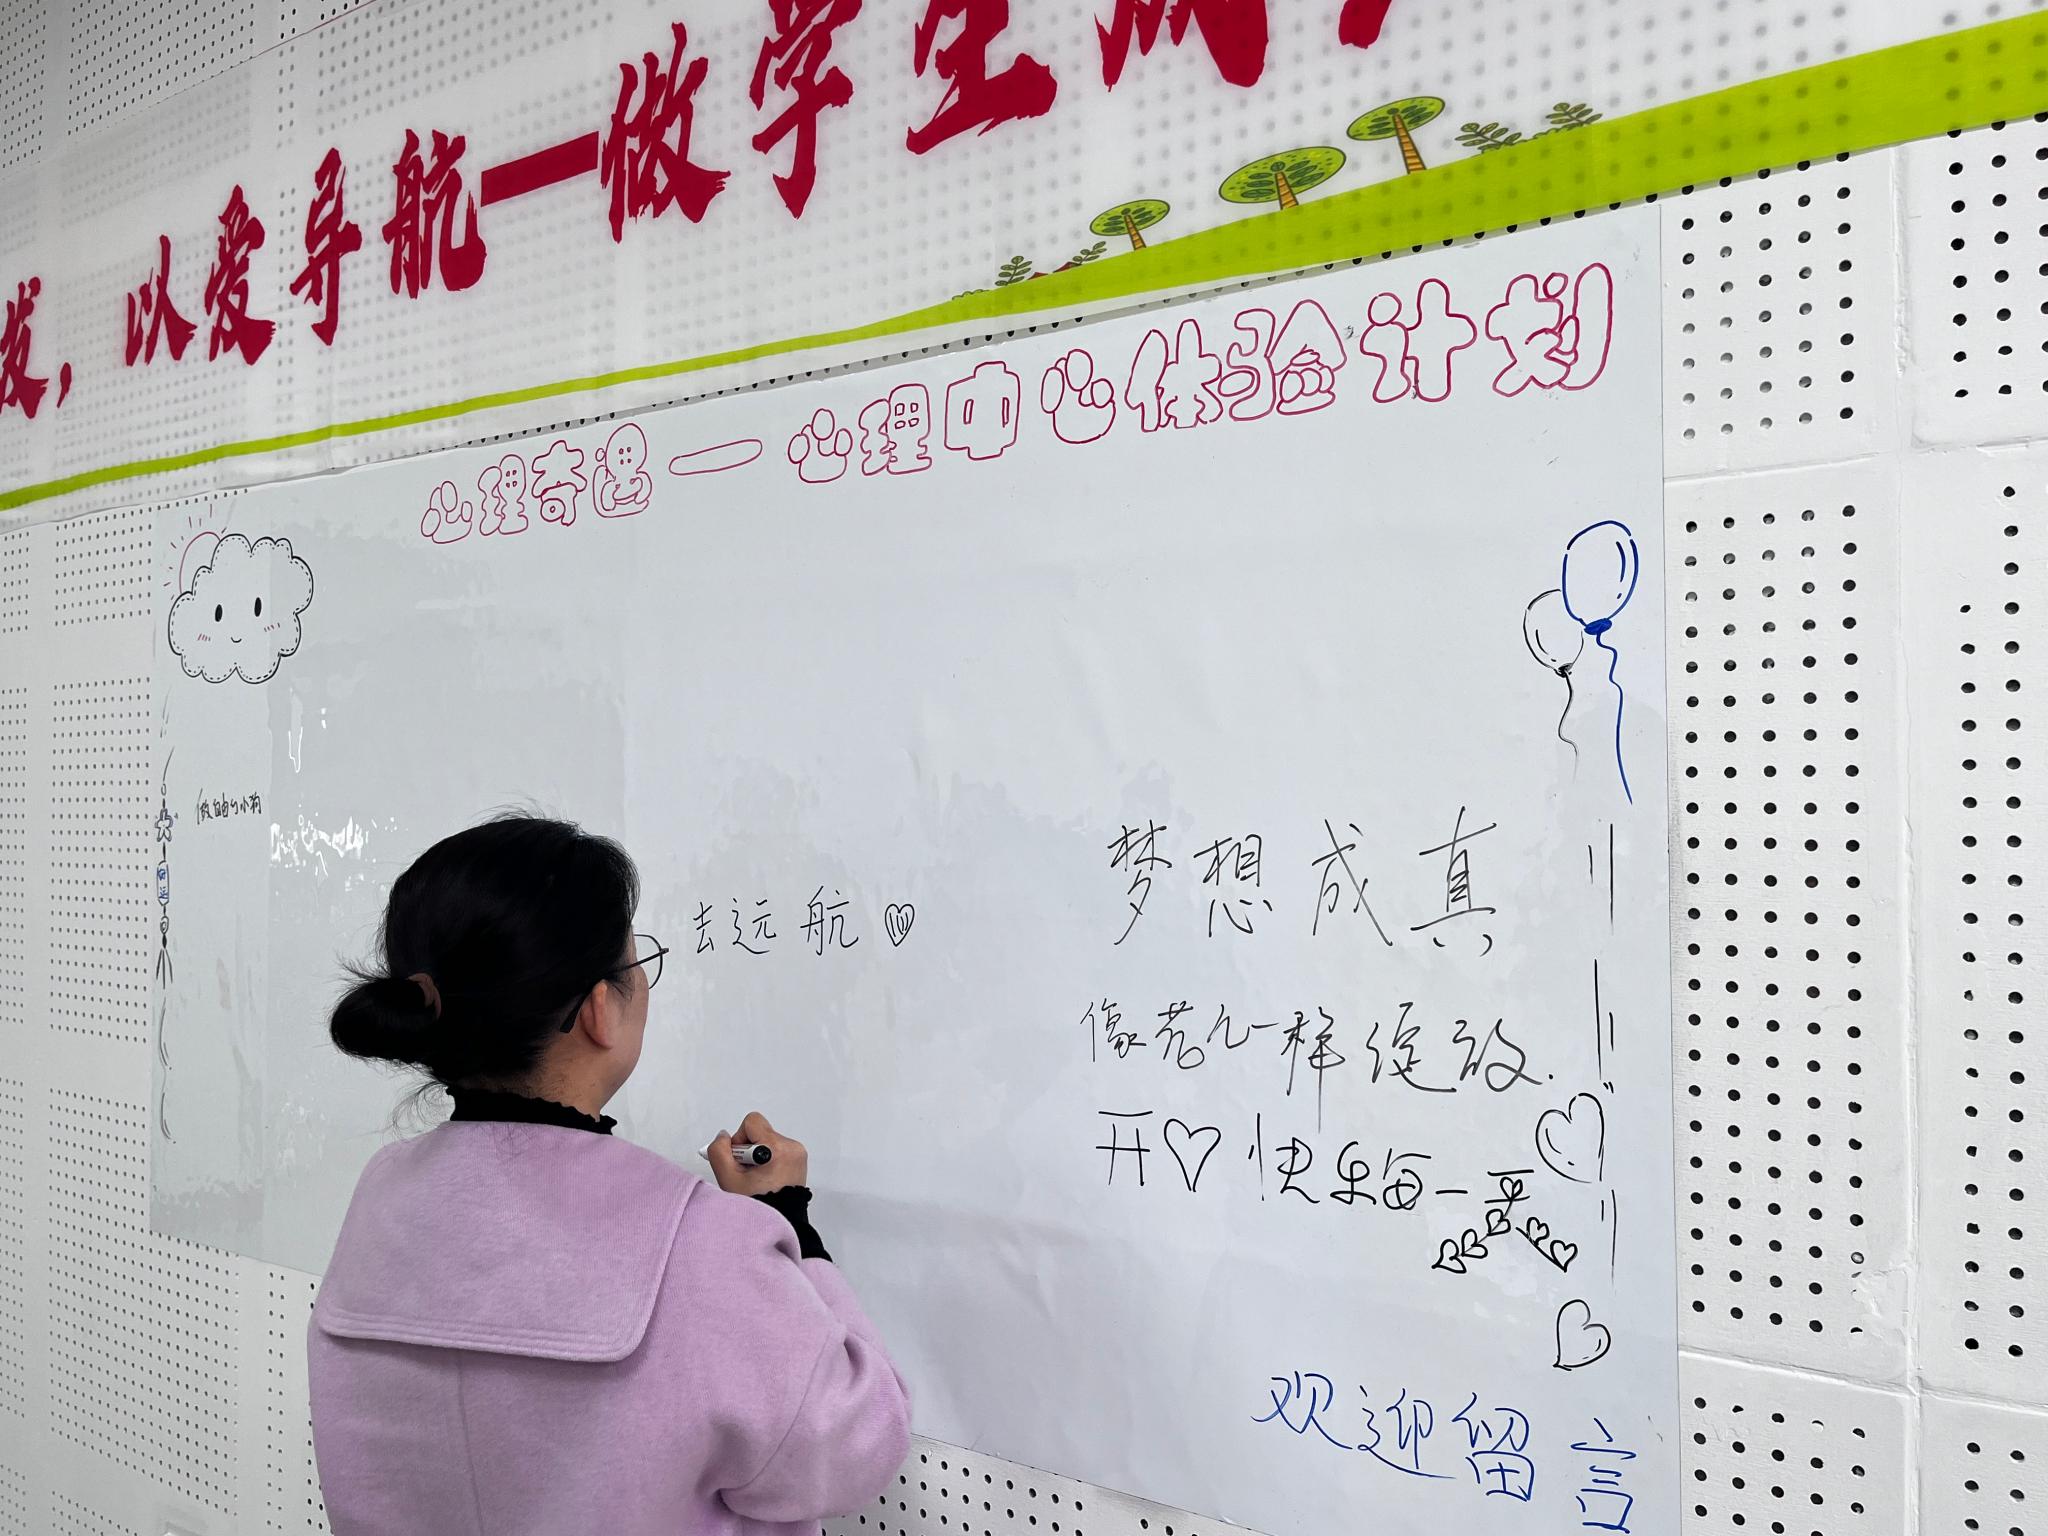 发，以爱导航—做学生成
心理奇遇—心理中心体验计划
做自由的小狗
去远航
梦想成真
像花儿一样绽放.
开♡快乐每一天
欢迎留言